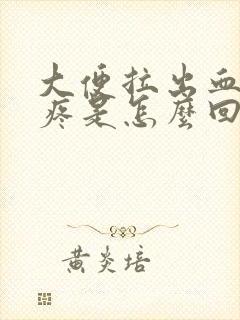 大便拉出血
疼是怎麼回
黃炎培